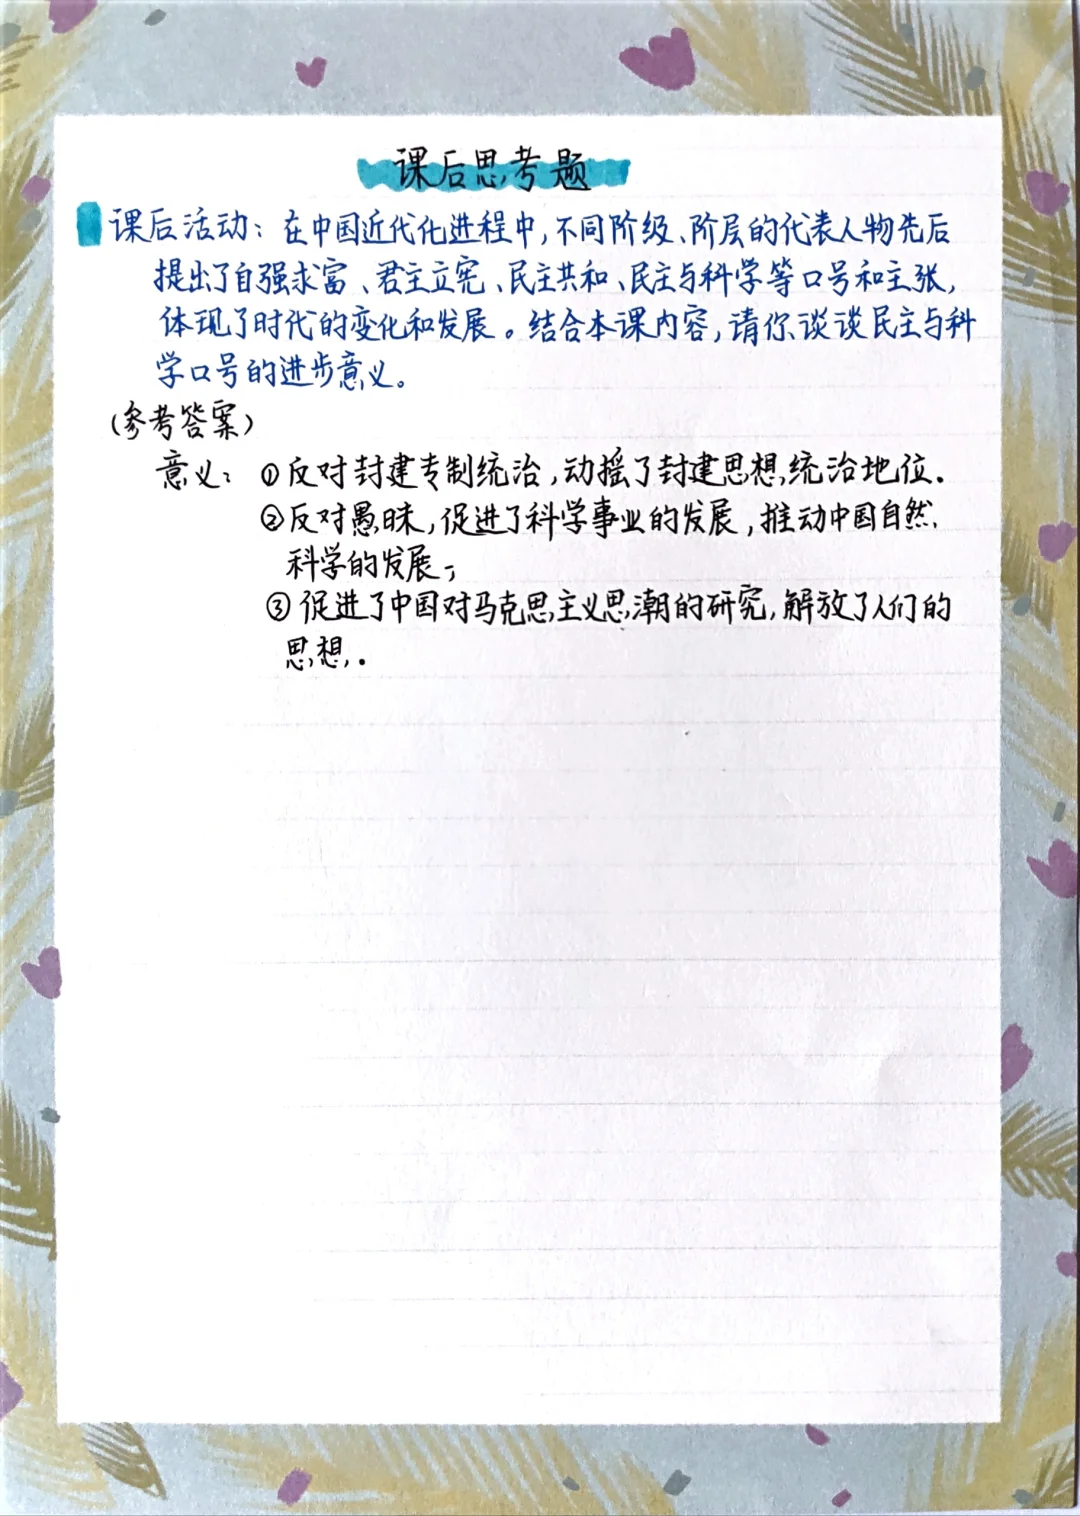 课后思考题
课后活动：在中国近代化进程中，不同阶级、阶层的代表人物先后
提出了自强求富、君主立宪、民主共和、民主与科学等口号和主张，
体现了时代的变化和发展。结合本课内容，请你谈谈民主与科
学口号的进步意义。
（参考答案）
意义：①反对封建专制统治，动摇了封建思想统治地位.
②反对愚昧，促进了科学事业的发展，推动中国自然
科学的发展；
③促进了中国对马克思主义思潮的研究，解放了人们的
思想.